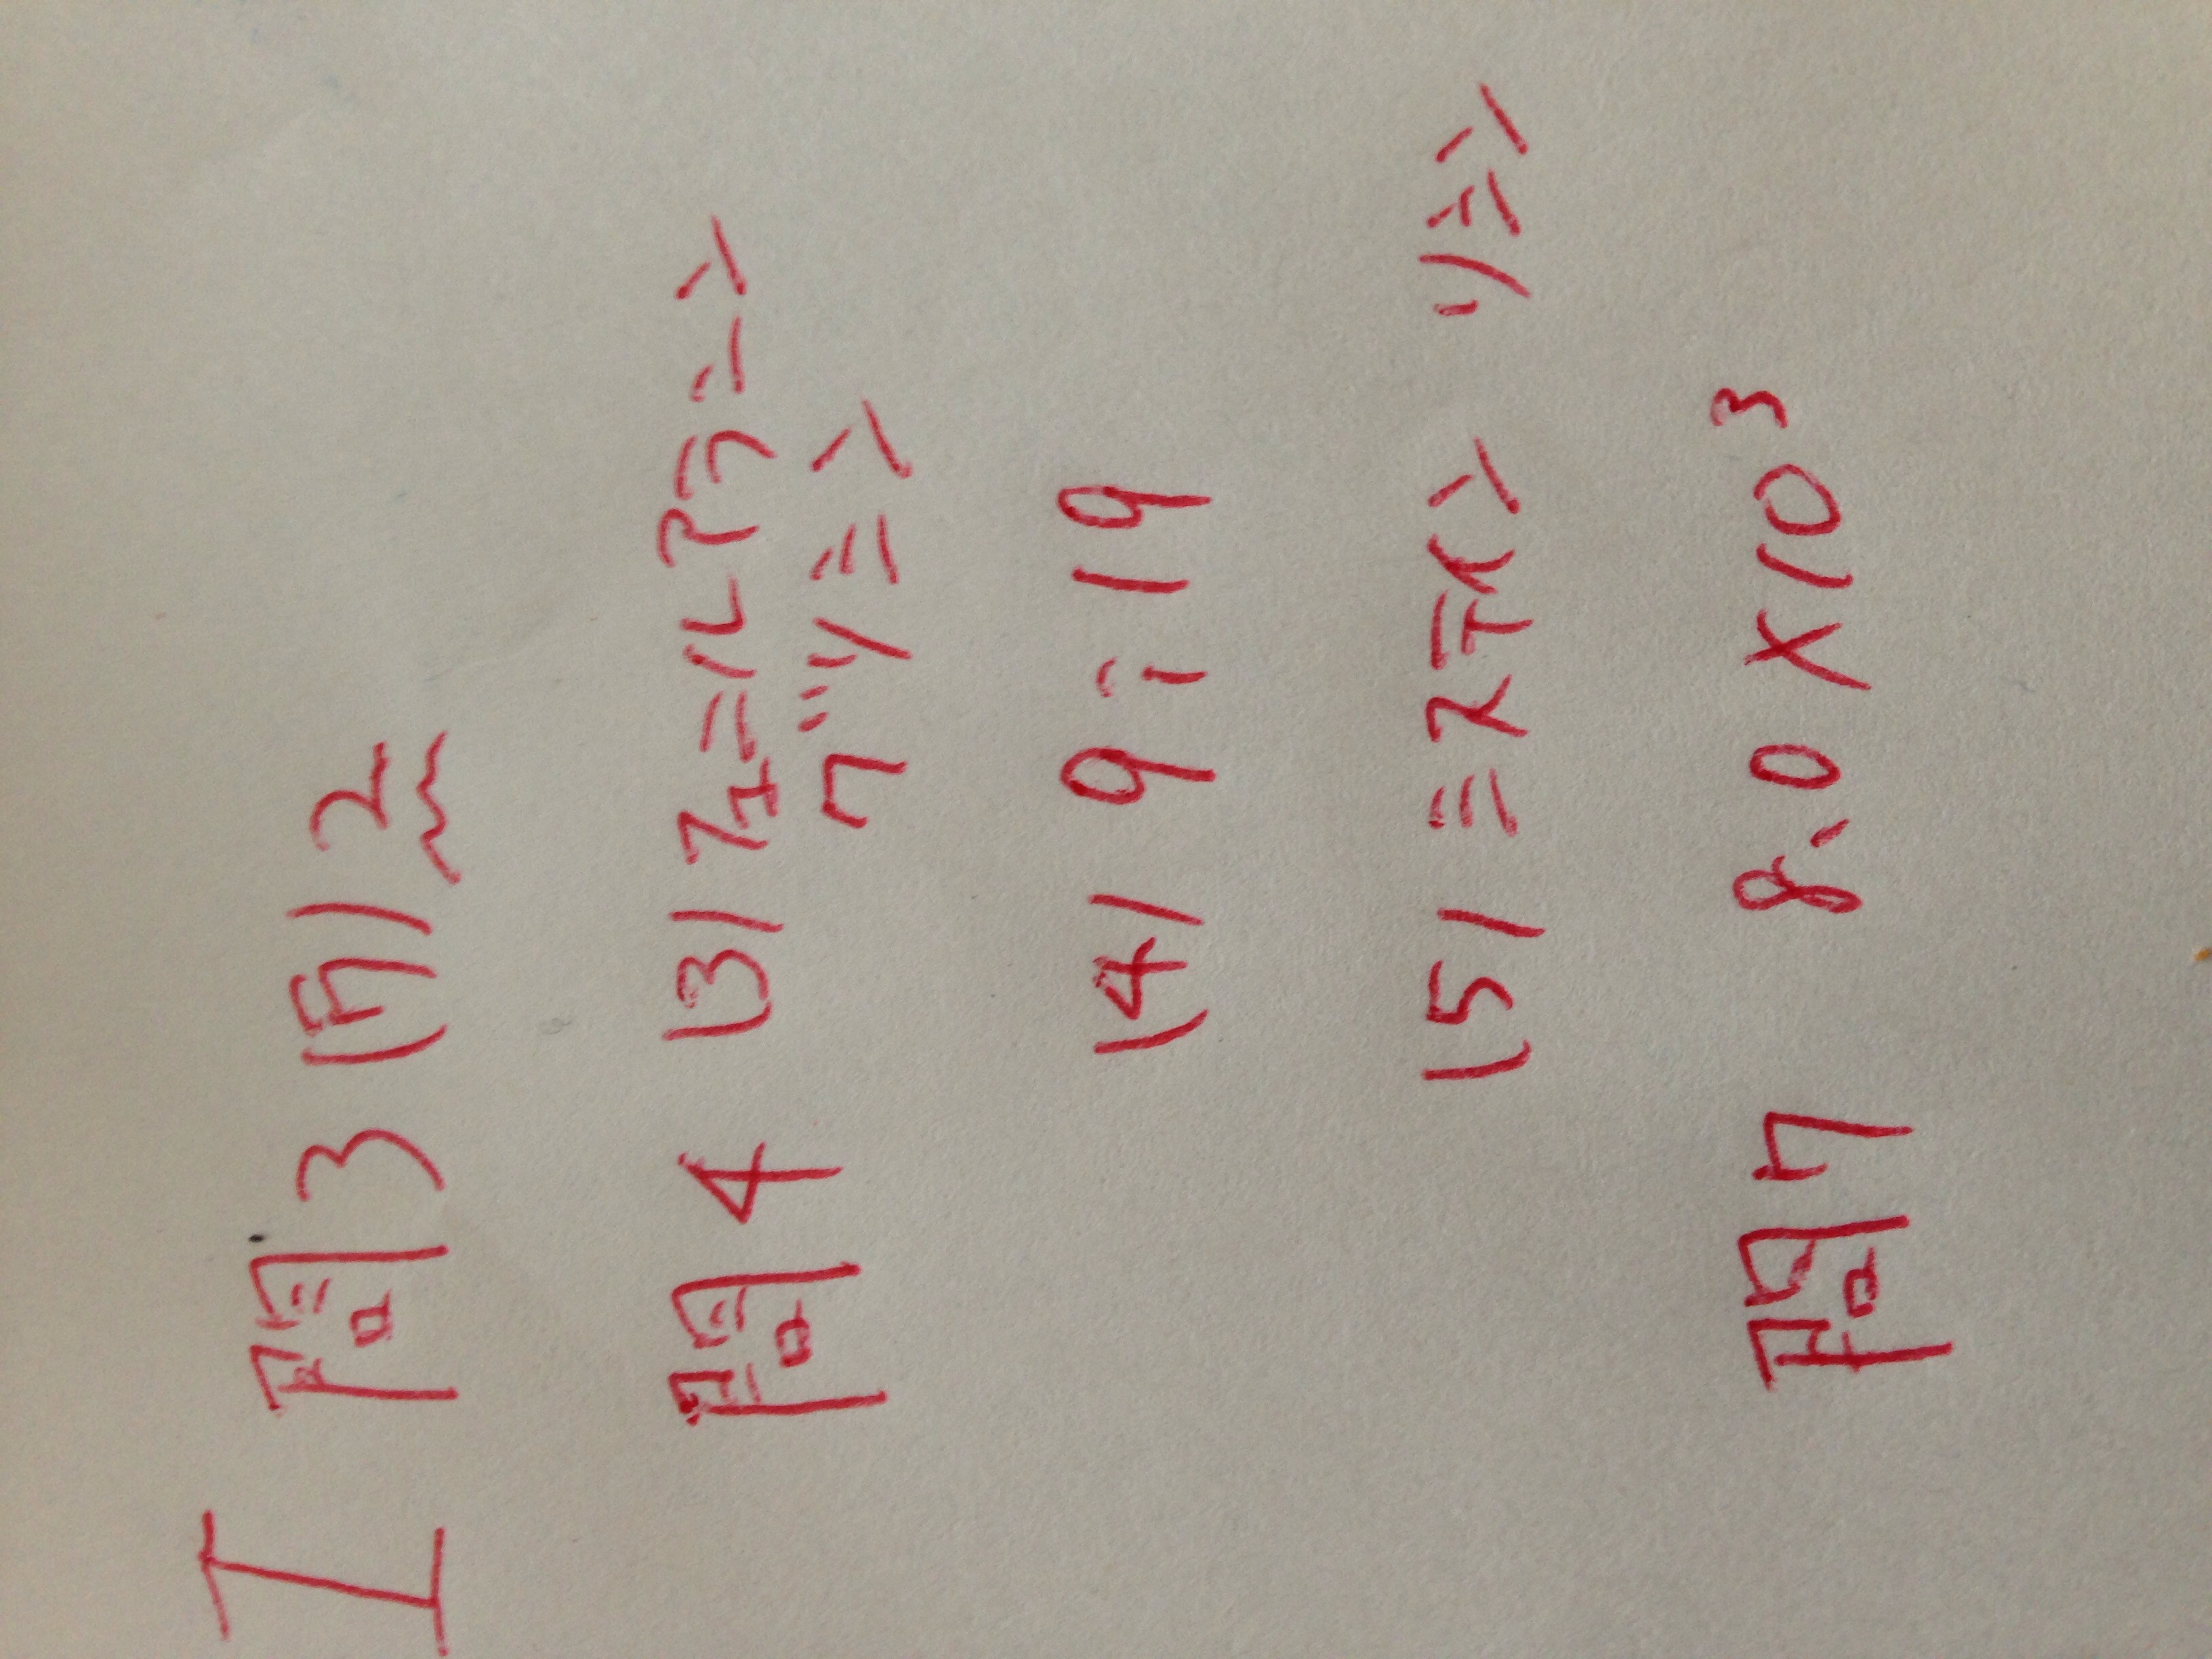 I 問3 (ア) 2
問4 (3) フェニルアラニン
グリシン
(4) 9:19
(5) システイン リシン
問7 8.0×10³